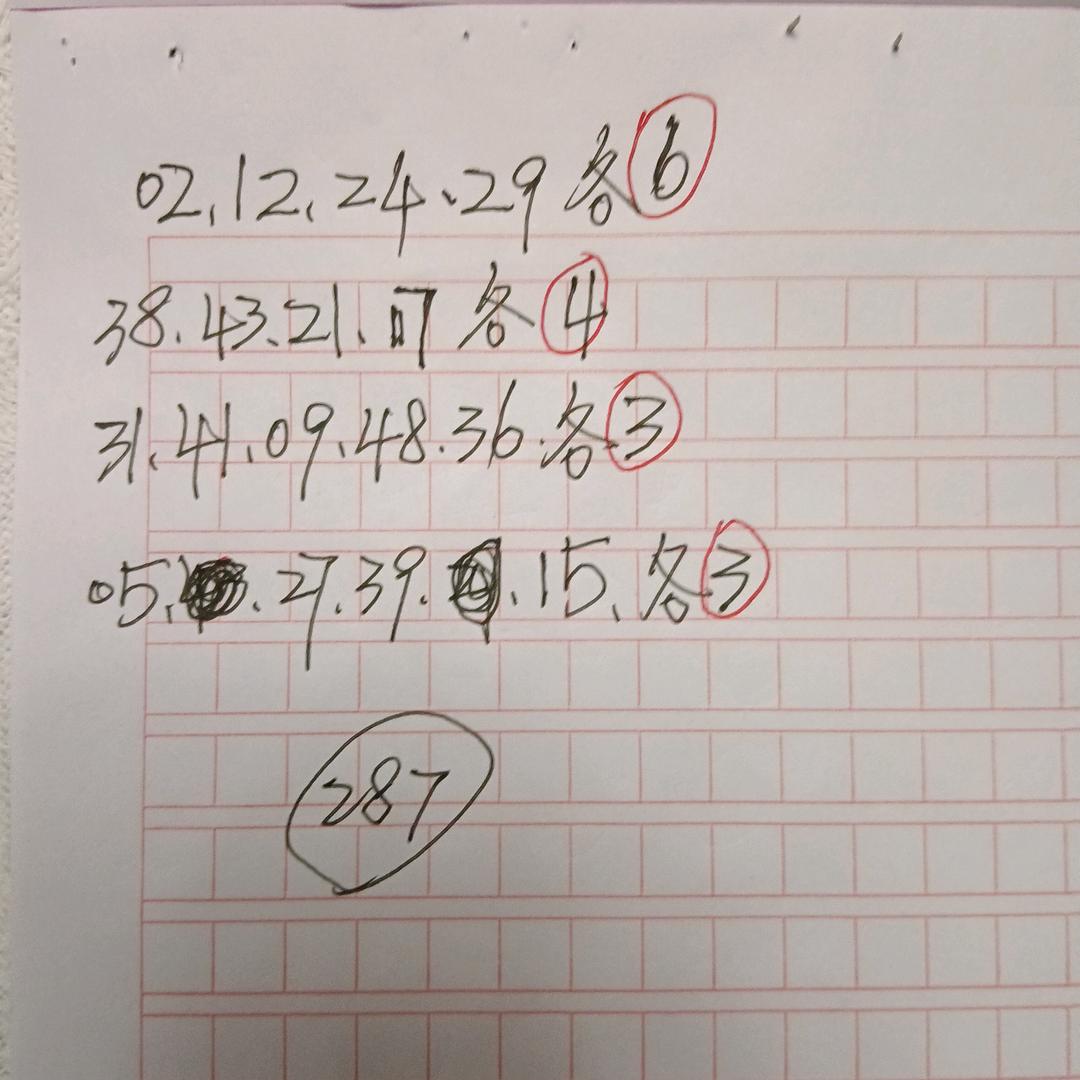 02.12.24.29各6
38.43.21.17各4
31.41.09.48.36.各3
05.27.39.15.各3
287